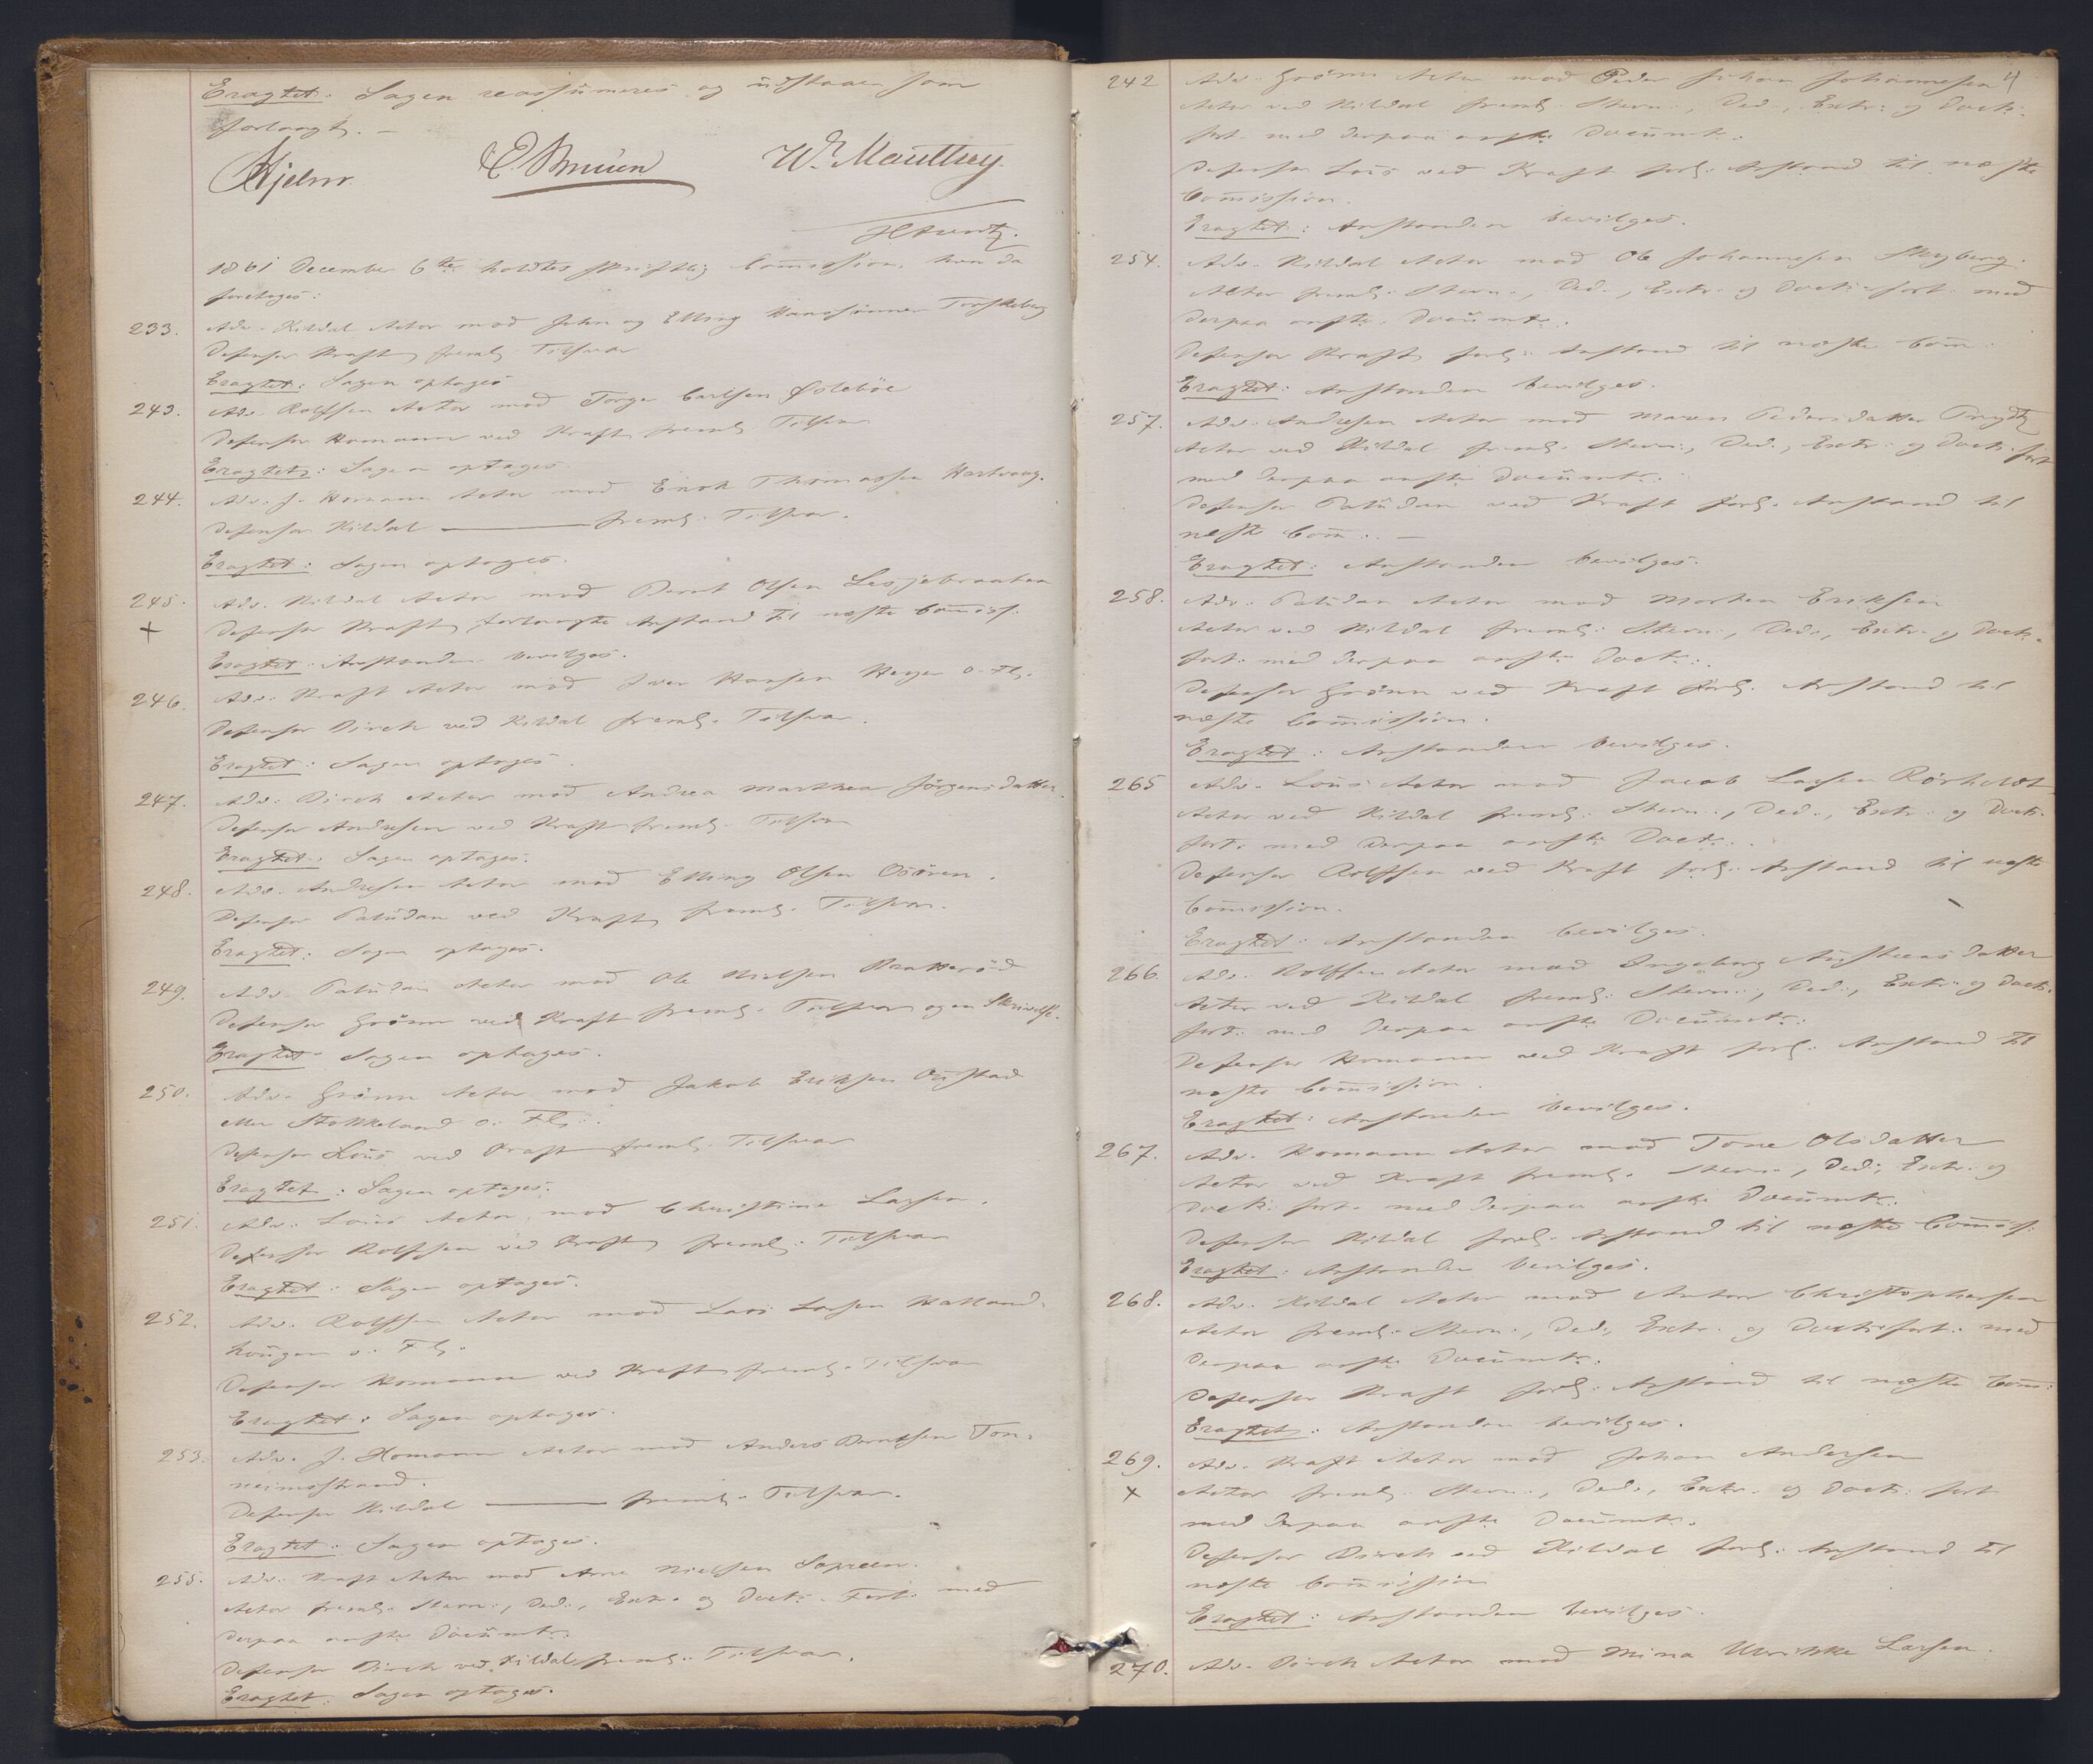 Eragtet: Sagen reassumeres og udstaaer som
forlangt. —
Hjelm. E. Bruun W. Maultrey.
1861 December 6te holdtes skriftlig Commission. hvor da
foretoges:
233. Adv. Kildal Actor mod John og Elling Hanssønner Torskeberg
Defensor Kraft freml. Tilsvar
Eragtet: Sagen optages
243. Adv. Rolfsen Actor mod Torge Carlsen Ødebøe
Defensor Homann ved Kraft freml. Tilsvar
Eragtet: Sagen optages.
244. Adv. J. Homann Actor mod Enok Thomassen Hartvaag.
Defensor Kildal ——— freml. Tilsvar.
Eragtet: Sagen optages.
245. Adv. Kildal Actor mod Bernt Olsen Lesjebraaten
+ Defensor Kraft forlangte Anstand til næste Commiss.
Eragtet: Anstanden bevilges.
246. Adv. Kraft Actor mod Iver Hansen Heyer o. Fl.
Defensor Dirch ved Kildal freml. Tilsvar.
Eragtet: Sagen optages.
247. Adv. Dirch Actor mod Andrea Marthea Jörgensdatter.
Defensor Andresen ved Kraft freml. Tilsvar
Eragtet: Sagen optages.
248. Adv. Andresen Actor mod Elling Olsen Osøren.
Defensor Paludan ved Kraft freml. Tilsvar.
Eragtet: Sagen optages.
249. Adv. Paludan Actor mod Ole Nielsen Bratterød
Defensor Grönn ved Kraft freml. Tilsvar og en Skrivelse.
Eragtet: Sagen optages.
250. Adv. Grönn Actor mod Jakob Eriksen Austad
eller Stokkeland o. Fl.
Defensor Lous ved Kraft freml. Tilsvar
Eragtet: Sagen optages.
251. Adv. Lous Actor mod Christine Larsen.
Defensor Rolfsen ved Kraft freml. Tilsvar
Eragtet: Sagen optages.
252. Adv. Rolfsen Actor mod Lars Larsen Hatland-
hougen o. Fl.
Defensor Homann ved Kraft freml. Tilsvar
Eragtet: Sagen optages.
253. Adv. J. Homann Actor mod Anders Berntsen Ton-
neimsstrand.
Defensor Kildal ——— freml. Tilsvar.
Eragtet: Sagen optages.
255. Adv. Kraft Actor mod Arne Nielsen
Actor freml. Stevn., Ded., Extr. og Doct. Fort. med
derpaa anfte Documtr.
Defensor Dirch ved Kildal freml. Tilsvar.
Eragtet: Sagen optages.
4
242 Adv. Grönn Actor mod Peder Johan Johannesen
Actor ved Kildal freml. Stevn., Ded., Extr. og Doct.
fort. med derpaa anfte Documtr.
Defensor Lous ved Kraft forl. Anstand til næste
Commission.
Eragtet: Anstanden bevilges.
254. Adv. Kildal Actor mod Ole Johannesen Skyberg.
Actor freml. Stevn., Ded., Extr. og Doct. fort. med
derpaa anfte Documtr.
Defensor Kraft forl. Anstand til næste Comm.
Eragtet: Anstanden bevilges.
257. Adv. Andresen Actor mod Maren Pedersdatter Prydtz
Actor ved Kildal freml. Stevn., Ded., Extr. og Doct. fort
med derpaa anfte Documtr.
Defensor Paludan ved Kraft forl. Anstand til
næste Comm. —
Eragtet: Anstanden bevilges.
258. Adv. Paludan Actor mod Morten Eriksen
Actor ved Kildal freml. Stevn., Ded., Extr. og Doct.
fort. med derpaa anfte Doct.
Defensor Grönn ved Kraft forl. Anstand til
næste Commission.
Eragtet: Anstanden bevilges.
265 Adv. Lous Actor mod Jacob Larsen Rörholdt
Actor ved Kildal freml. Stevn., Ded., Extr. og Doct.
fort. med derpaa anfte Doct.
Defensor Rolfsen ved Kraft forl. Anstand til næste
Commission.
Eragtet: Anstanden bevilges.
266. Adv. Rolfsen Actor mod Ingeborg Austensdatter
Actor ved Kildal freml. Stevn., Ded., Extr. og Doct.
fort. med derpaa anfte Documtr.
Defensor Homann ved Kraft forl. Anstand til
næste Commission.
Eragtet: Anstanden bevilges.
267. Adv. Homann Actor mod Tone Olsdatter
Actor ved Kraft freml. Stevn., Ded., Extr. og
Doct. fort. med derpaa anfte Documtr.
Defensor Kildal forl. Anstand til næste Commiss.
Eragtet: Anstanden bevilges.
268. Adv. Kildal Actor mod Anton Christophersen
Actor freml. Stevn., Ded., Extr. og Doct. fort. med
derpaa anfte Documtr.
Defensor Kraft forl. Anstand til næste Comm.
Eragtet: Anstanden bevilges.
269. Adv. Kraft Actor mod Johan Andersen
x Actor freml. Stevn., Ded., Extr. og Doct. fort
med derpaa anfte Documtr.
Defensor Dirch ved Kildal forl. Anstand til
næste Commission
Eragtet: Anstanden bevilges.
270. Adv. Dirch Actor mod Mina Ulrikke Larsen.